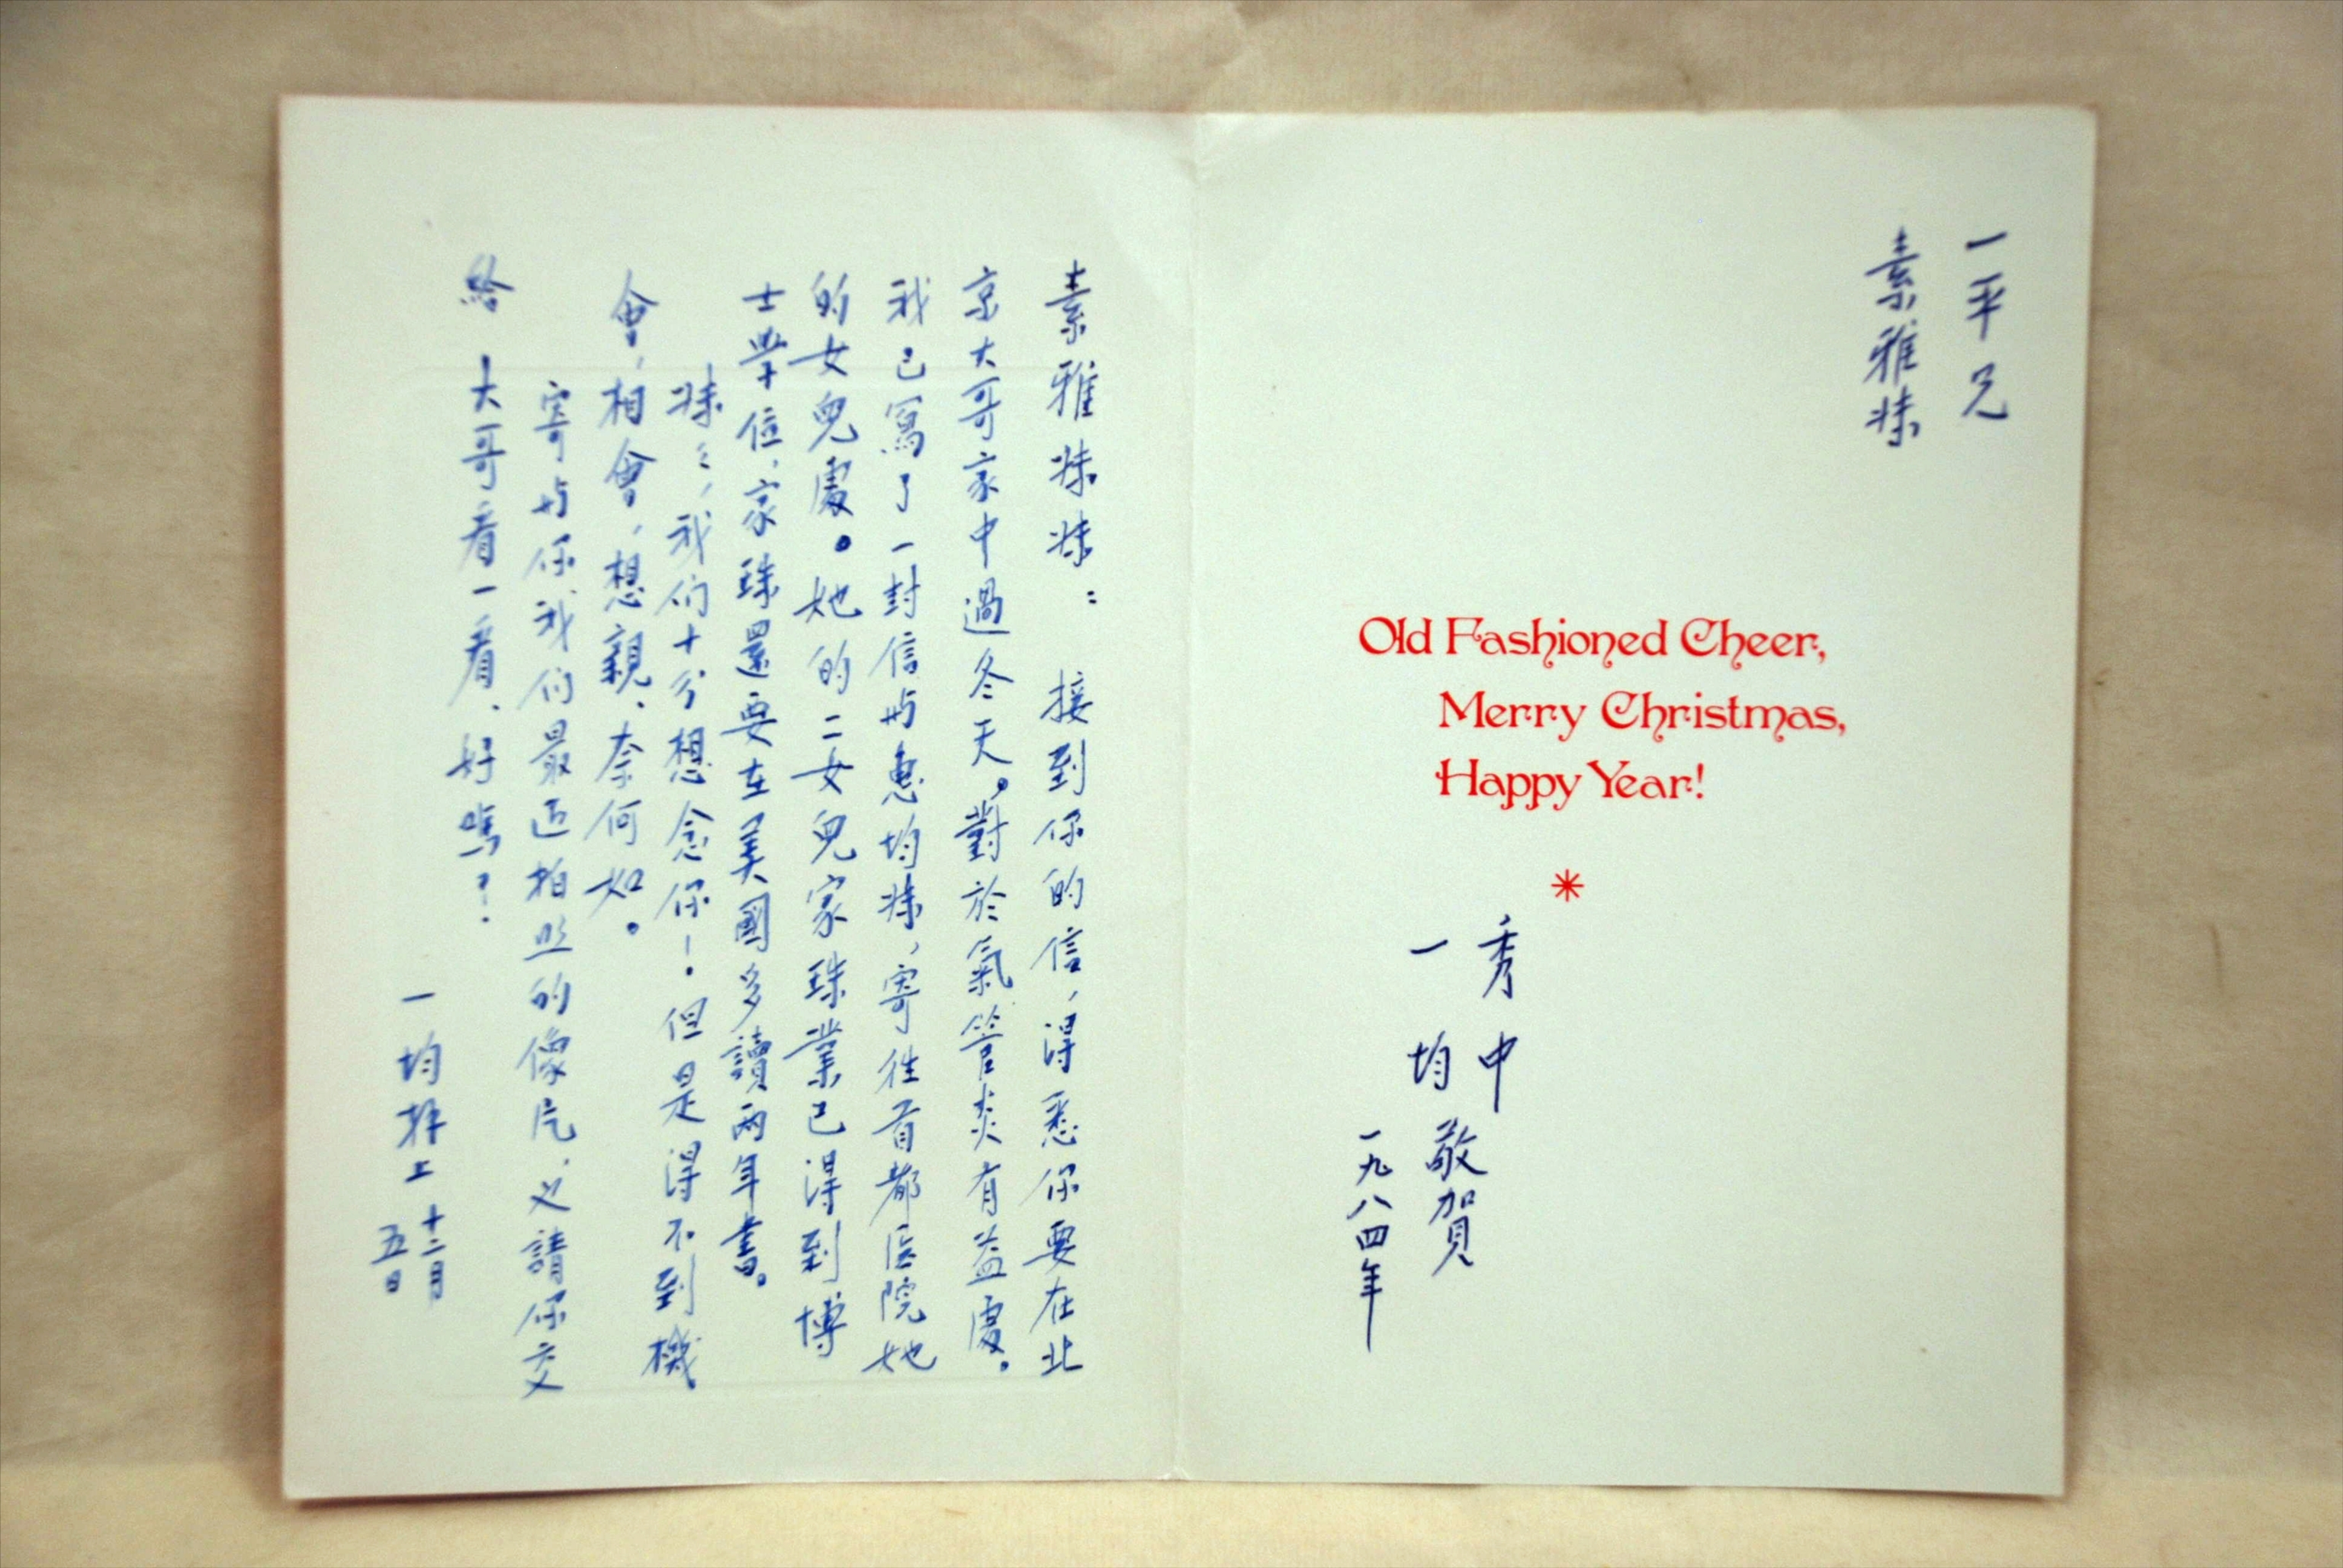 一平兄
素雅妹
Old Fashioned Cheer,
Merry Christmas,
Happy Year!
秀中
一均
敬賀
一九八四年
素雅妹妹：接到你的信，得悉你要在北
京大哥家中過冬天。對於氣管炎有益處。
我已寫了一封信与惠均妹，寄往首都医院她
的女兒處。她的二女兒家珠業已得到博
士學位，家珠還要在美國多讀兩年書。
妹：，我们十分想念你！但是得不到機
會，相會，想親、奈何如。
寄与你我们最近拍照的像片，請你交
給 大哥看一看、好嗎？
一均拜上 十二月
五日